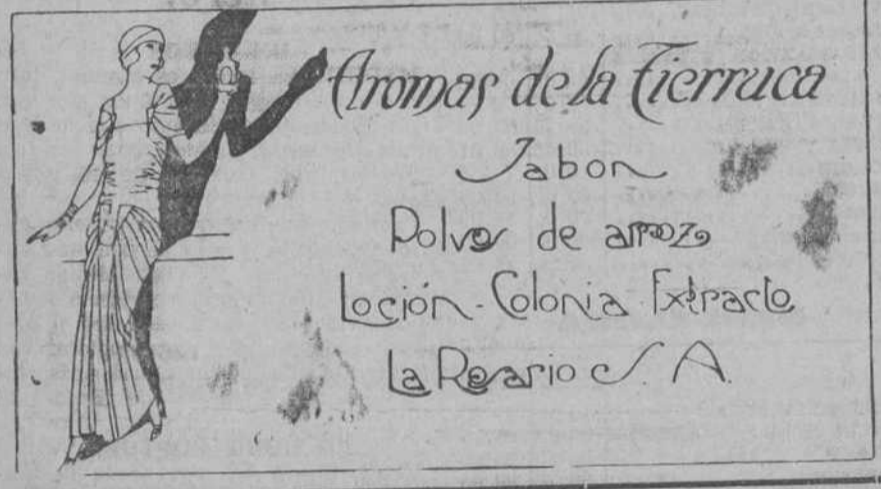 Aromas de la Tierruca
Jabón
Polvos de arroz
Loción - Colonia Extracto
La Rosario S. A.